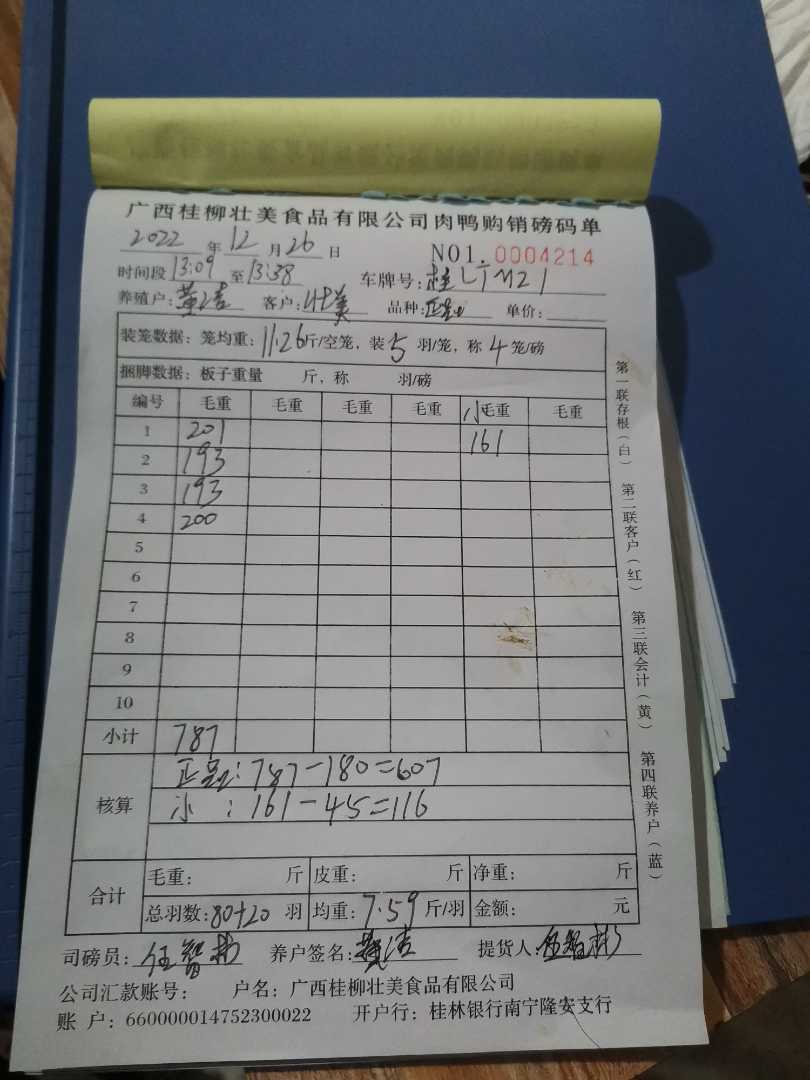 广西桂柳壮美食品有限公司肉鸭购销磅码单
2022 年 12 月 26 日 NO1. 0004214
时间段 13:09 至 13:38 车牌号:桂
养殖户: 黄洁 客户: 壮美 品种: 正品 单价:
装笼数据: 笼均重: 11.26 斤/空笼, 装 5 羽/笼, 称 4 笼/磅
捆脚数据: 板子重量 斤, 称 羽/磅
编号 毛重 毛重 毛重 毛重 小毛重 毛重
1 201 161
2 193
3 193
4 200
5
6
7
8
9
10
小计 787
核算 正品: 787-180=607
小: 161-45=116
合计 毛重: 斤 皮重: 斤 净重: 斤
总羽数: 80+20 羽 均重: 7.59 斤/羽 金额: 元
司磅员: 伍智彬 养户签名: 黄洁 提货人: 伍智彬
公司汇款账号: 户名: 广西桂柳壮美食品有限公司
账 户: 660000014752300022 开户行: 桂林银行南宁隆安支行
第一联存根(白) 第二联客户(红) 第三联会计(黄) 第四联养户(蓝)